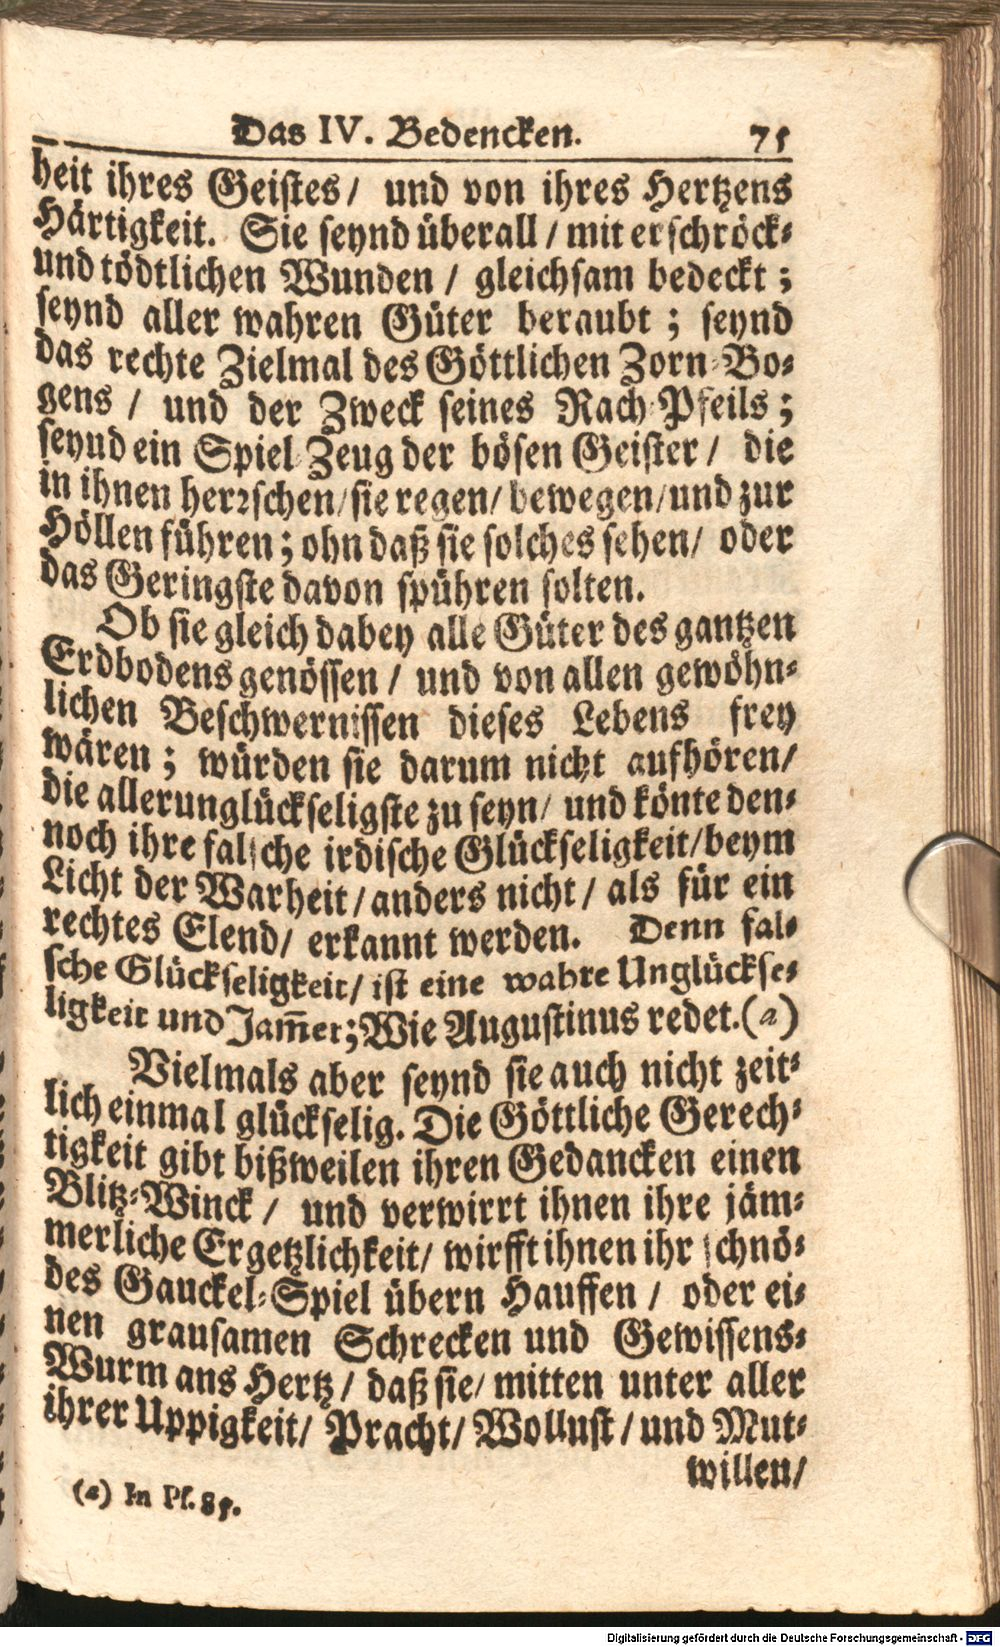 Das IV. Bedencken. 75
heit ihres Geistes / und von ihres Hertzens
Härtigkeit. Sie seynd überall / mit erschröck-
und tödtlichen Wunden / gleichsam bedeckt ;
seynd aller wahren Güter beraubt ; seynd
das rechte Zielmal des Göttlichen Zorn-Bo-
gens / und der Zweck seines Rach-Pfeils ;
seynd ein Spiel-Zeug der bösen Geister / die
in ihnen herrschen / sie regen / bewegen / und zur
Höllen führen ; ohn daß sie solches sehen / oder
das Geringste davon spühren solten.
Ob sie gleich dabey alle Güter des gantzen
Erdbodens genössen / und von allen gewöhn-
lichen Beschwernissen dieses Lebens frey
wären ; würden sie darum nicht aufhören /
die allerunglückseligste zu seyn / und könte den-
noch ihre falsche irdische Glückseligkeit / beym
Licht der Warheit / anders nicht / als für ein
rechtes Elend / erkannt werden. Denn fal-
sche Glückseligkeit / ist eine wahre Unglückse-
ligkeit und Jam̃er ; Wie Augustinus redet. (a)
Vielmals aber seynd sie auch nicht zeit-
lich einmal glückselig. Die Göttliche Gerech-
tigkeit gibt bißweilen ihren Gedancken einen
Blitz-Winck / und verwirrt ihnen ihre jäm-
merliche Ergetzlichkeit / wirfft ihnen ihr schnö-
des Gauckel-Spiel übern Hauffen / oder ei-
nen grausamen Schrecken und Gewissens-
Wurm ans Hertz / daß sie / mitten unter aller
ihrer Uppigkeit / Pracht / Wollust / und Mut-
willen /
(a) In Ps. 85.
Digitalisierung gefördert durch die Deutsche Forschungsgemeinschaft - DFG